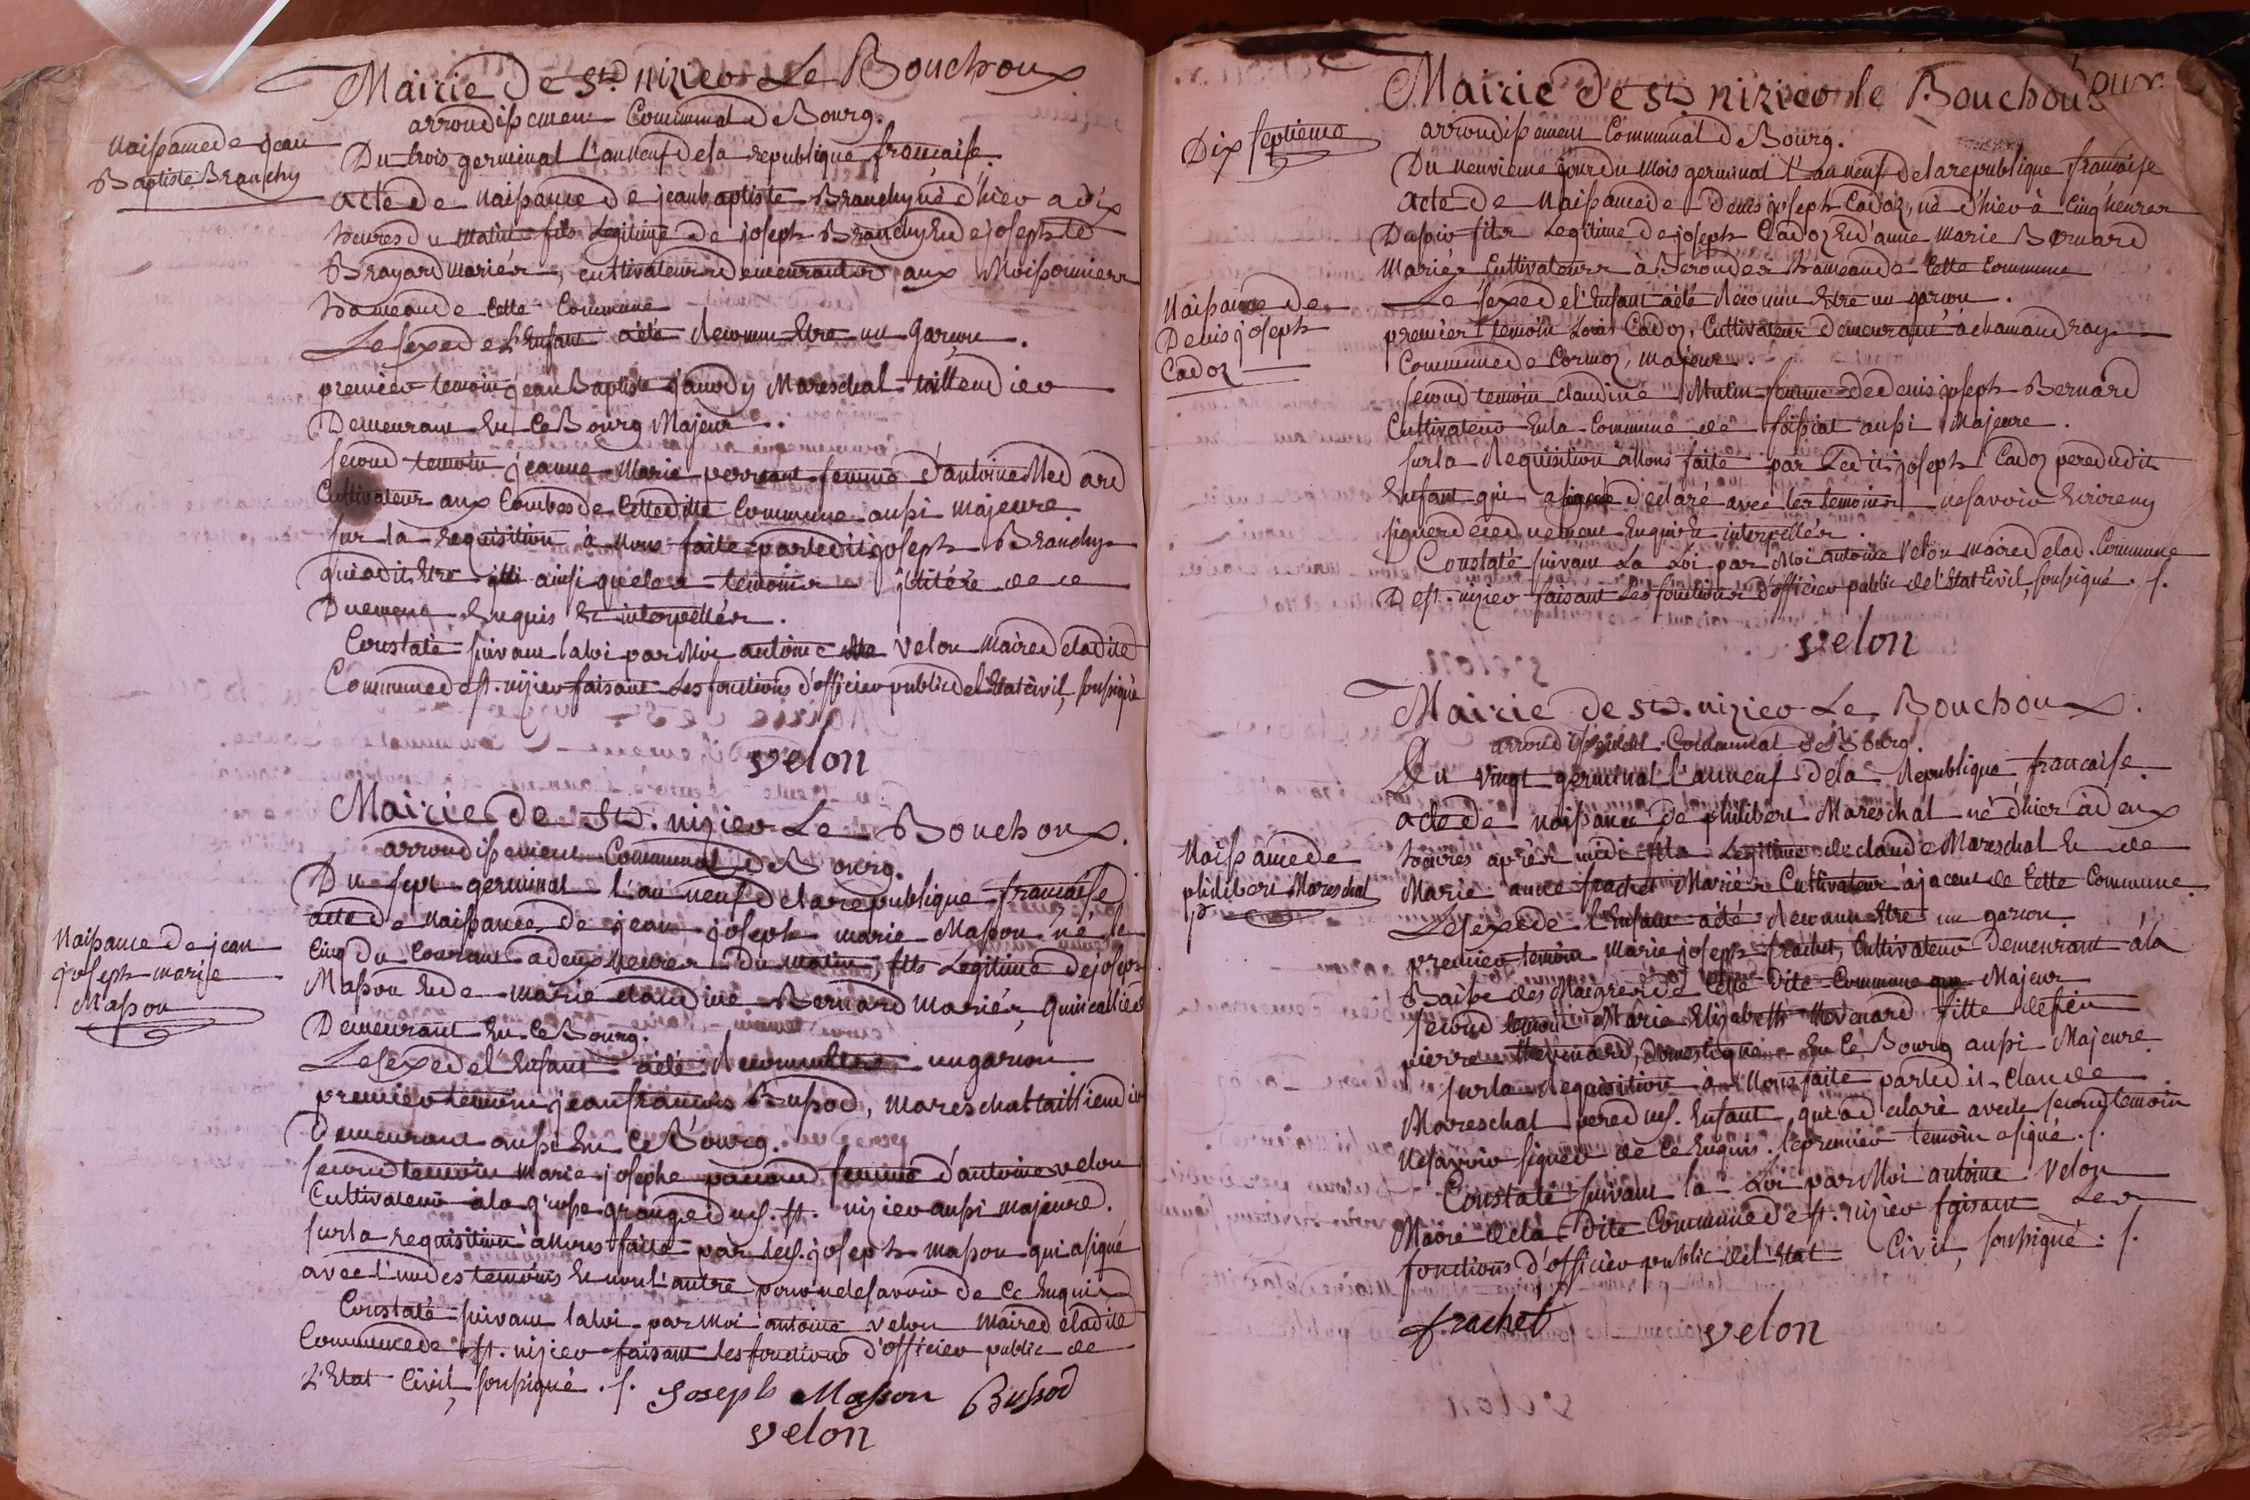 Mairie de St. nizier Le Bouchoux
arrondissement Communal de Bourg.
Naissance de jean
Baptiste Branchy
Du trois germinal l'an neuf de la republique francaise.
acte de naissance de jean baptiste Branchy né d'hier a dix
heures du matin fils Legitime de joseph Branchy Et de josephte
Brayard mariés, cultivateurs demeurant aux Moissonniers
hameau de Cette Commune
Le sexe de L'Enfant a été Reconnu Etre un Garçon.
premier temoin jean Baptiste jaundy Mareschal taillendier
Demeurant En Ce Bourg Majeur.
second temoin jeanne Marie femme d'antoine Medard
Cultivateur aux Combes de Cette dite Commune aussi majeure.
sur la requisition à Nous faite par ledit joseph Branchy
qui a dit Etre ainsi que les temoins illitéré de ce
Duement Enquis Et interpellés.
Constaté suivant la loi par Moi antoine Velon maire de la dite
Commune de st. nizier faisant Les fonctions d'officier public de l'Etat civil, soussigné
velon
Mairie de St. nizier Le Bouchoux.
arrondissement Communal de Bourg.
Du sept germinal l'an neuf de la republique francaise
Naissance de jean
joseph marie
Masson
acte de Naissance de jean joseph marie Masson né le
Cinq du Courant a deux heures Du matin, fils Legitime de joseph
Masson Et de marie claudine Bernard Mariés, Quincallier
Demeurant En Ce Bourg.
Le sexe de l'Enfant a été Reconnu Etre un garcon
premier temoin jean francois Bussod, mareschal taillendier
Demeurant aussi En Ce Bourg.
second temoin Marie josephe femme d'antoine velon
Cultivateur a la grosse grange dud. st. nizier aussi majeure.
sur la requisition à Nous faite par led. joseph Masson qui a signé
avec l'un des temoins Et non l'autre pour ne le savoir de Ce Enquis
Constaté suivant la loi par Moi antoine velon maire de la dite
Commune de st. nizier faisant les fonctions d'officier public de
L'Etat Civil, soussigné . /.
Joseph Masson Bussod
velon
Mairie de St. nizier le Bouchoux
arrondissement Communal de Bourg.
Dix septieme
Du neuvieme jour du Mois germinal l'an neuf de la republique francaise
acte de Naissance de Denis joseph Cadoz, né d'hier à Cinq heures
Du soir fils Legitime de joseph Cadoz Et d'anne marie Bernard
Mariés Cultivateurs à Beroudes hameau de Cette Commune
Naissance de
Denis joseph
Cadoz
Le sexe de l'Enfant a été Reconnu Etre un garcon.
premier temoin Louis Cadoz, Cultivateur demeurant à chamandray
Commune de Cormoz, majeur.
second temoin claudine Mutin femme de denis joseph Bernard
Cultivateur En la Commune de foissiat aussi Majeure.
sur la Requisition a Nous faite par Ledit joseph Cadoz pere dudit
Enfant qui a declaré avec les temoins ne savoir Ecrire ny
signer de ce duement Enquis Et interpellés.
Constaté suivant La Loi par Moi antoine velon maire de lad. Commune
De st. nizier faisant Les fonctions d'officier public de l'Etat Civil, soussigné. /.
velon
Mairie de St. nizier Le Bouchoux.
arrondissement Communal de Bourg.
Du vingt germinal l'an neuf de la Republique francaise.
acte de naissance de philibert Mareschal né d'hier à deux
heures après midi fils Legitime de claude Mareschal Et de
Naissance de
philibert Mareschal
Marie anne frachet Mariés Cultivateur a jacent de Cette Commune.
Le sexe de l'Enfant a été Reconnu Etre un garcon.
premier temoin Marie joseph frachet, Cultivateur Demeurant à la
Baisse des Maigres de Cette Dite Commune Majeur
second temoin Marie Elizabeth thevenard fille de feu
pierre thevenard, domestique En Ce Bourg aussi Majeure.
sur la Requisition à Nous faite par ledit Claude
Mareschal pere dud. Enfant, qui a declaré avec le second temoin
Ne savoir signer de Ce Enquis. le premier temoin a signé. /.
Constaté suivant la Loi par Moi antoine Velon
Maire de la Dite Commune de st. nizier faisant Les
fonctions d'officier public de l'Etat Civil, soussigné. /.
frachet velon